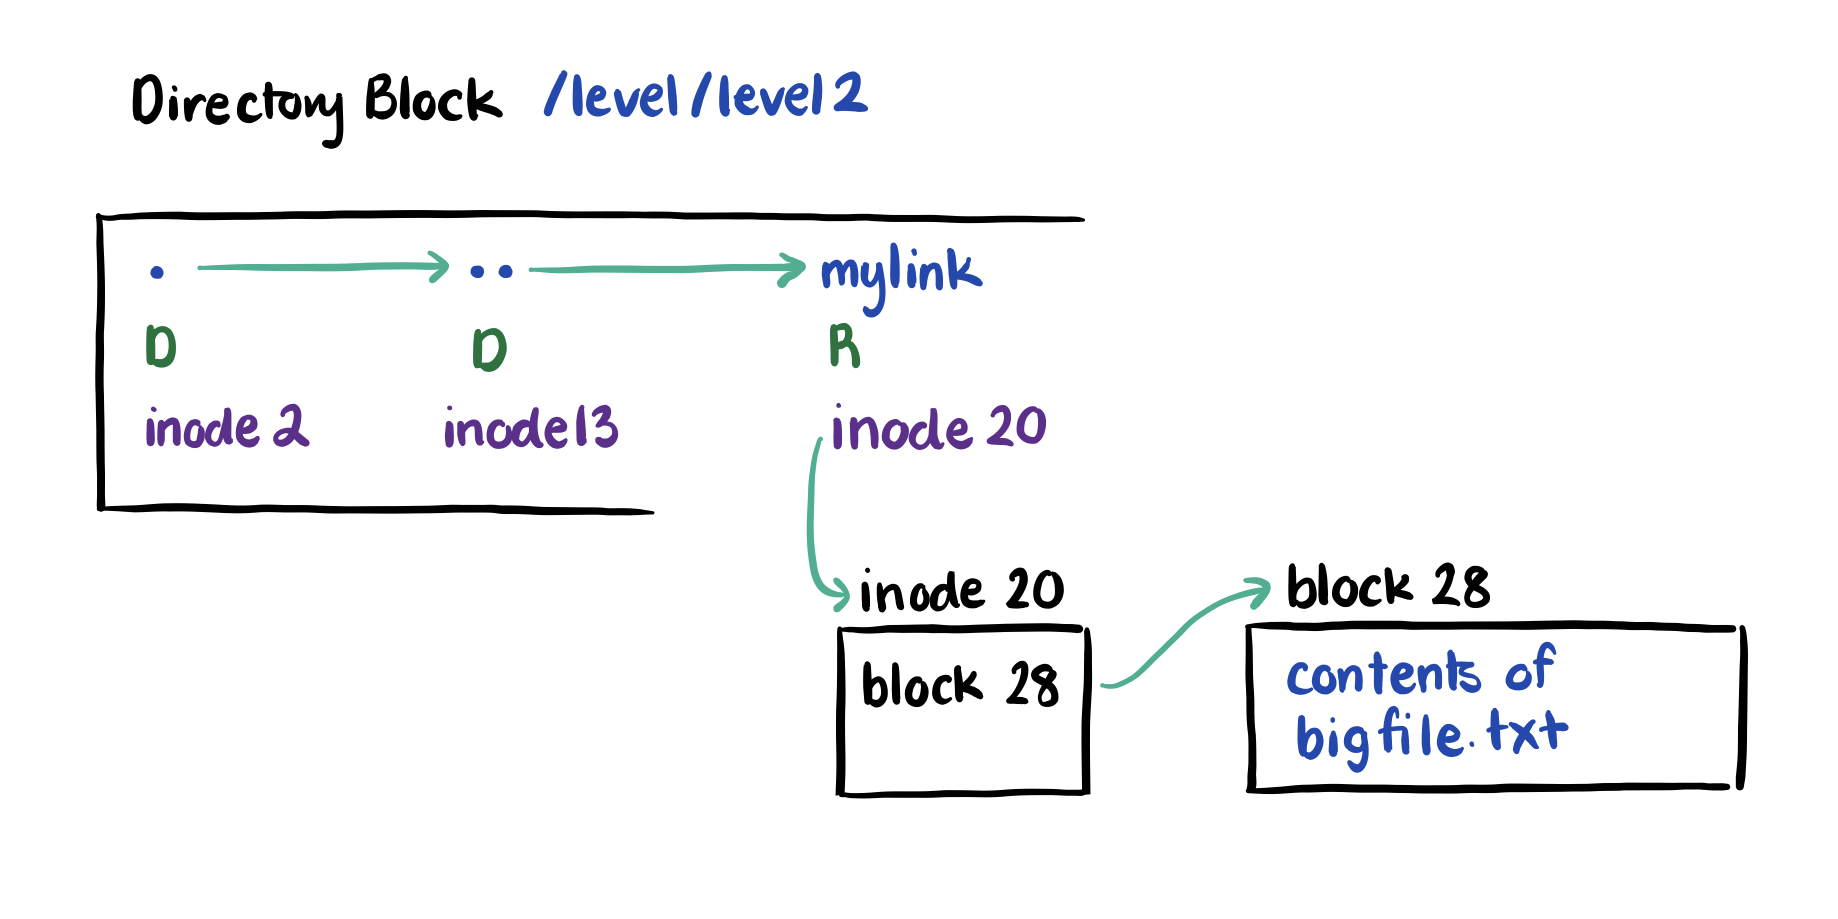 Directory Block /level/level2
. .. mylink
D D R
inode 2 inode 13 inode 20
inode 20 block 28
block 28 contents of
bigfile.txt